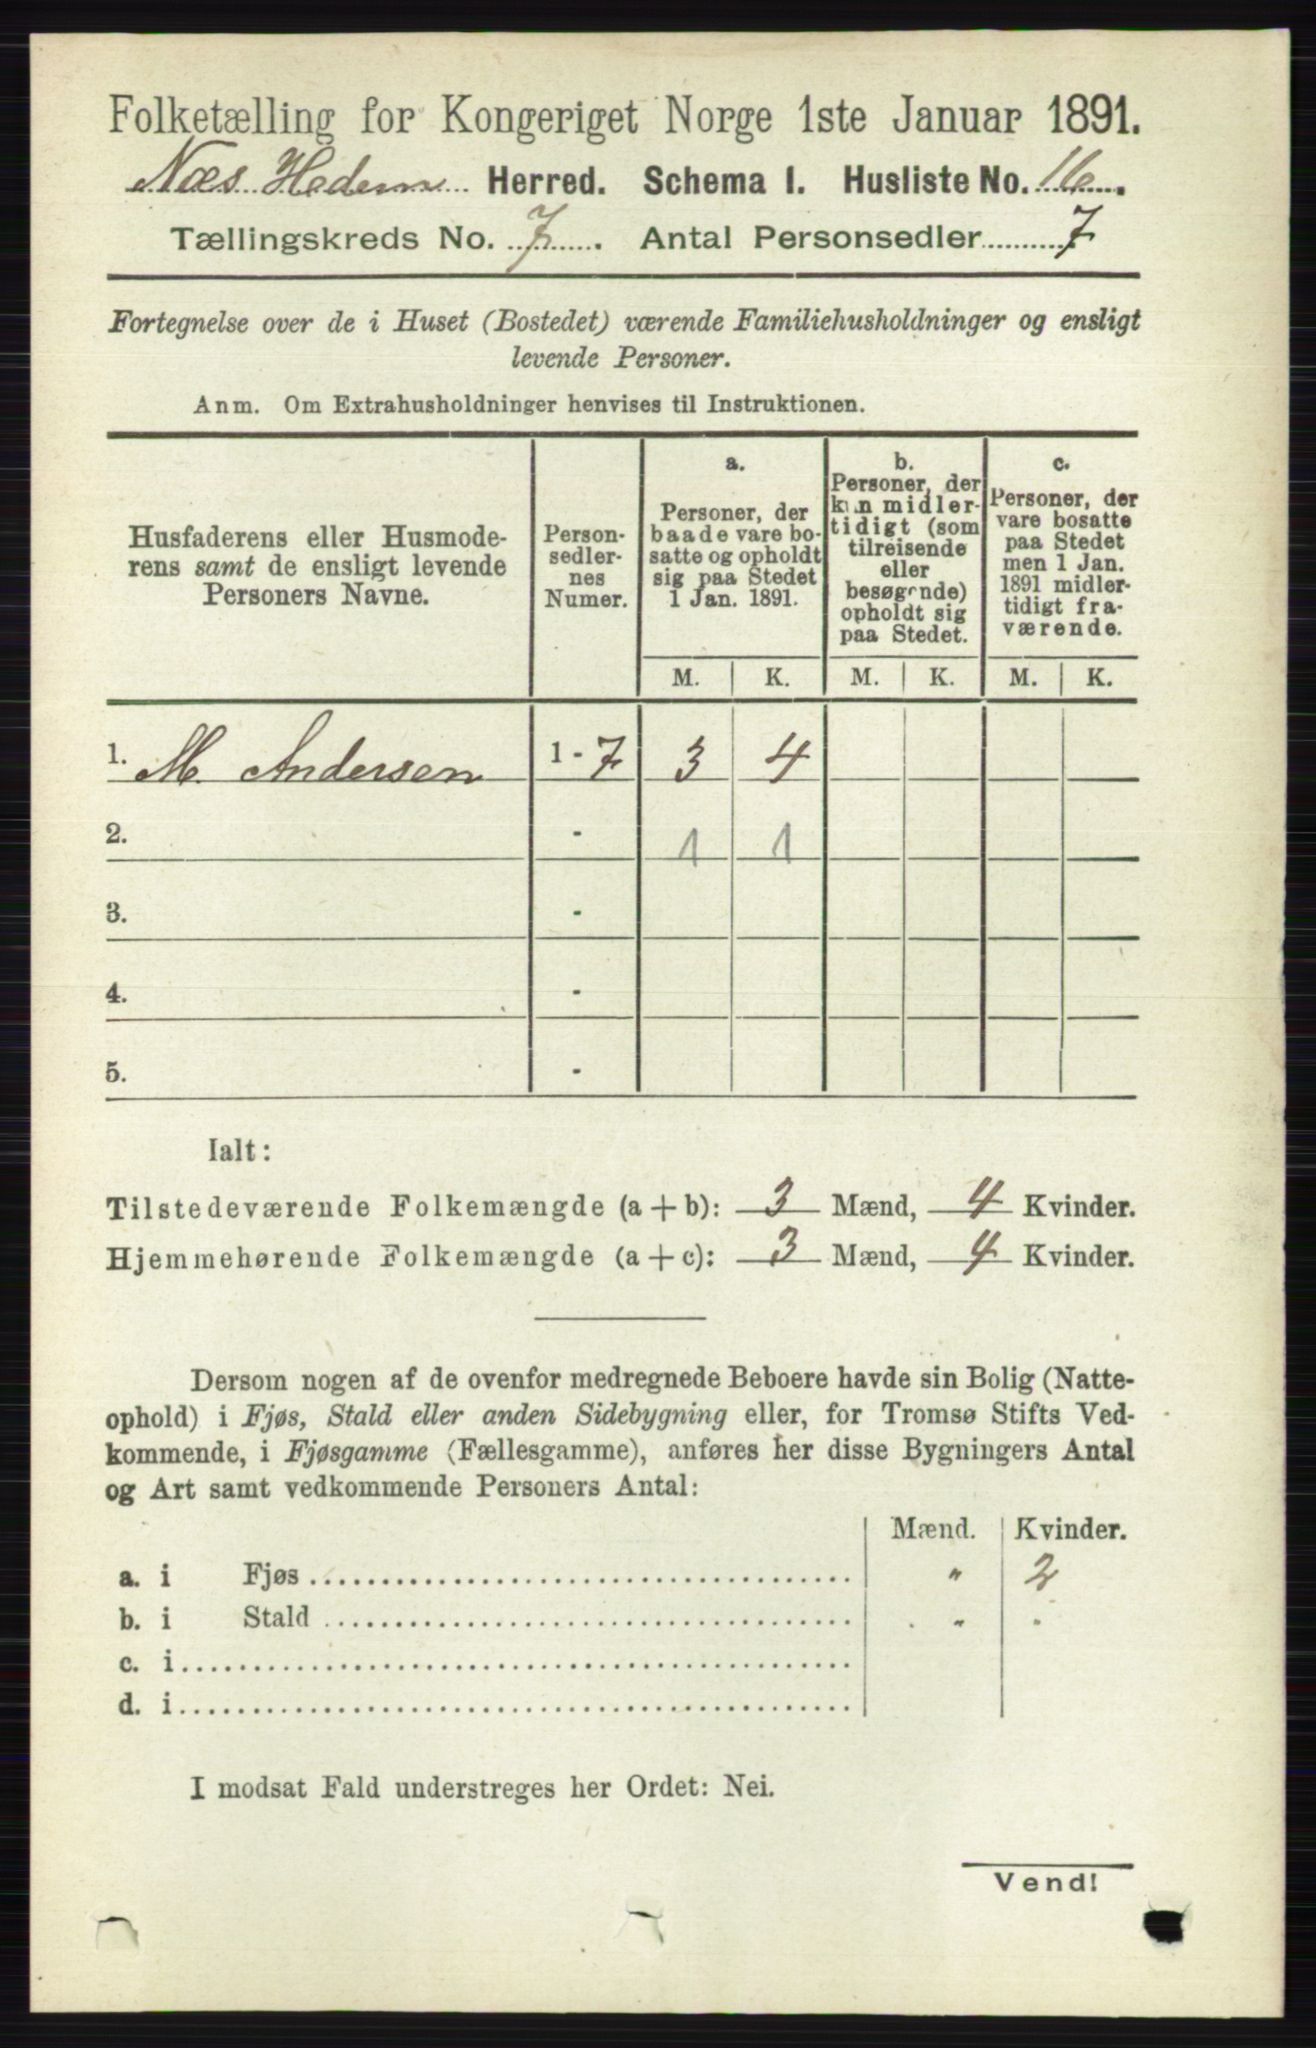 Folketælling for Kongeriget Norge 1ste Januar 1891.
Næs Hedem Herred. Schema 1. Husliste No. 16.
Tællingskreds No. 7. Antal Personsedler 7
Fortegnelse over de i Huset (Bostedet) værende Familiehusholdninger og ensligt
levende Personer.
Anm. Om Extrahusholdninger henvises til Instruktionen.
Husfaderens eller Husmode-
rens samt de ensligt levende
Personers Navne.
Person-
sedler-
nes
Numer.
a.
Personer, der
baade vare bo-
satte og opholdt
sig paa Stedet
1 Jan. 1891.
b.
Personer, der
kun midler-
tidigt (som
tilreisende
eller
besøgende)
opholdt sig
paa Stedet.
c.
Personer, der
vare bosatte
paa Stedet
men 1 Jan.
1891 midler-
tidigt fra-
værende.
M. K. M. K. M. K.
1. M. Andersen 1 - 7 3 4
2. - 1 1
3. -
4. -
5. -
Ialt:
Tilstedeværende Folkemængde (a + b): 3 Mænd, 4 Kvinder.
Hjemmehørende Folkemængde (a + c): 3 Mænd, 4 Kvinder.
Dersom nogen af de ovenfor medregnede Beboere havde sin Bolig (Natte-
ophold) i Fjøs, Stald eller anden Sidebygning eller, for Tromsø Stifts Ved-
kommende, i Fjøsgamme (Fællesgamme), anføres her disse Bygningers Antal
og Art samt vedkommende Personers Antal:
Mænd. Kvinder.
a. i Fjøs " 2
b. i Stald " "
c. i
d. i
I modsat Fald understreges her Ordet: Nei.
Vend!